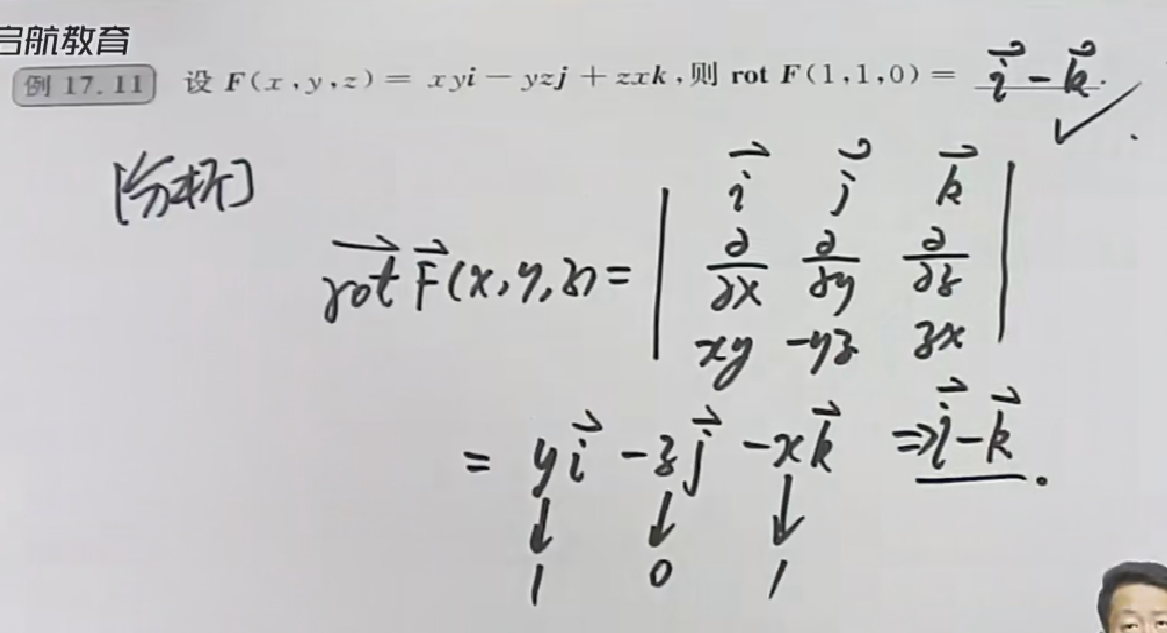 启航教育
例 17.11 设 F(x,y,z)= xyi－yzj＋zxk,则 rot F(1,1,0)= i⃗－k⃗.
[分析]
i⃗ j⃗ k⃗
rot F⃗(x,y,z)= ∂/∂x ∂/∂y ∂/∂z
xy －yz zx
= yi⃗ －zj⃗ －xk⃗ ⇒ i⃗－k⃗.
↓ ↓ ↓
1 0 1